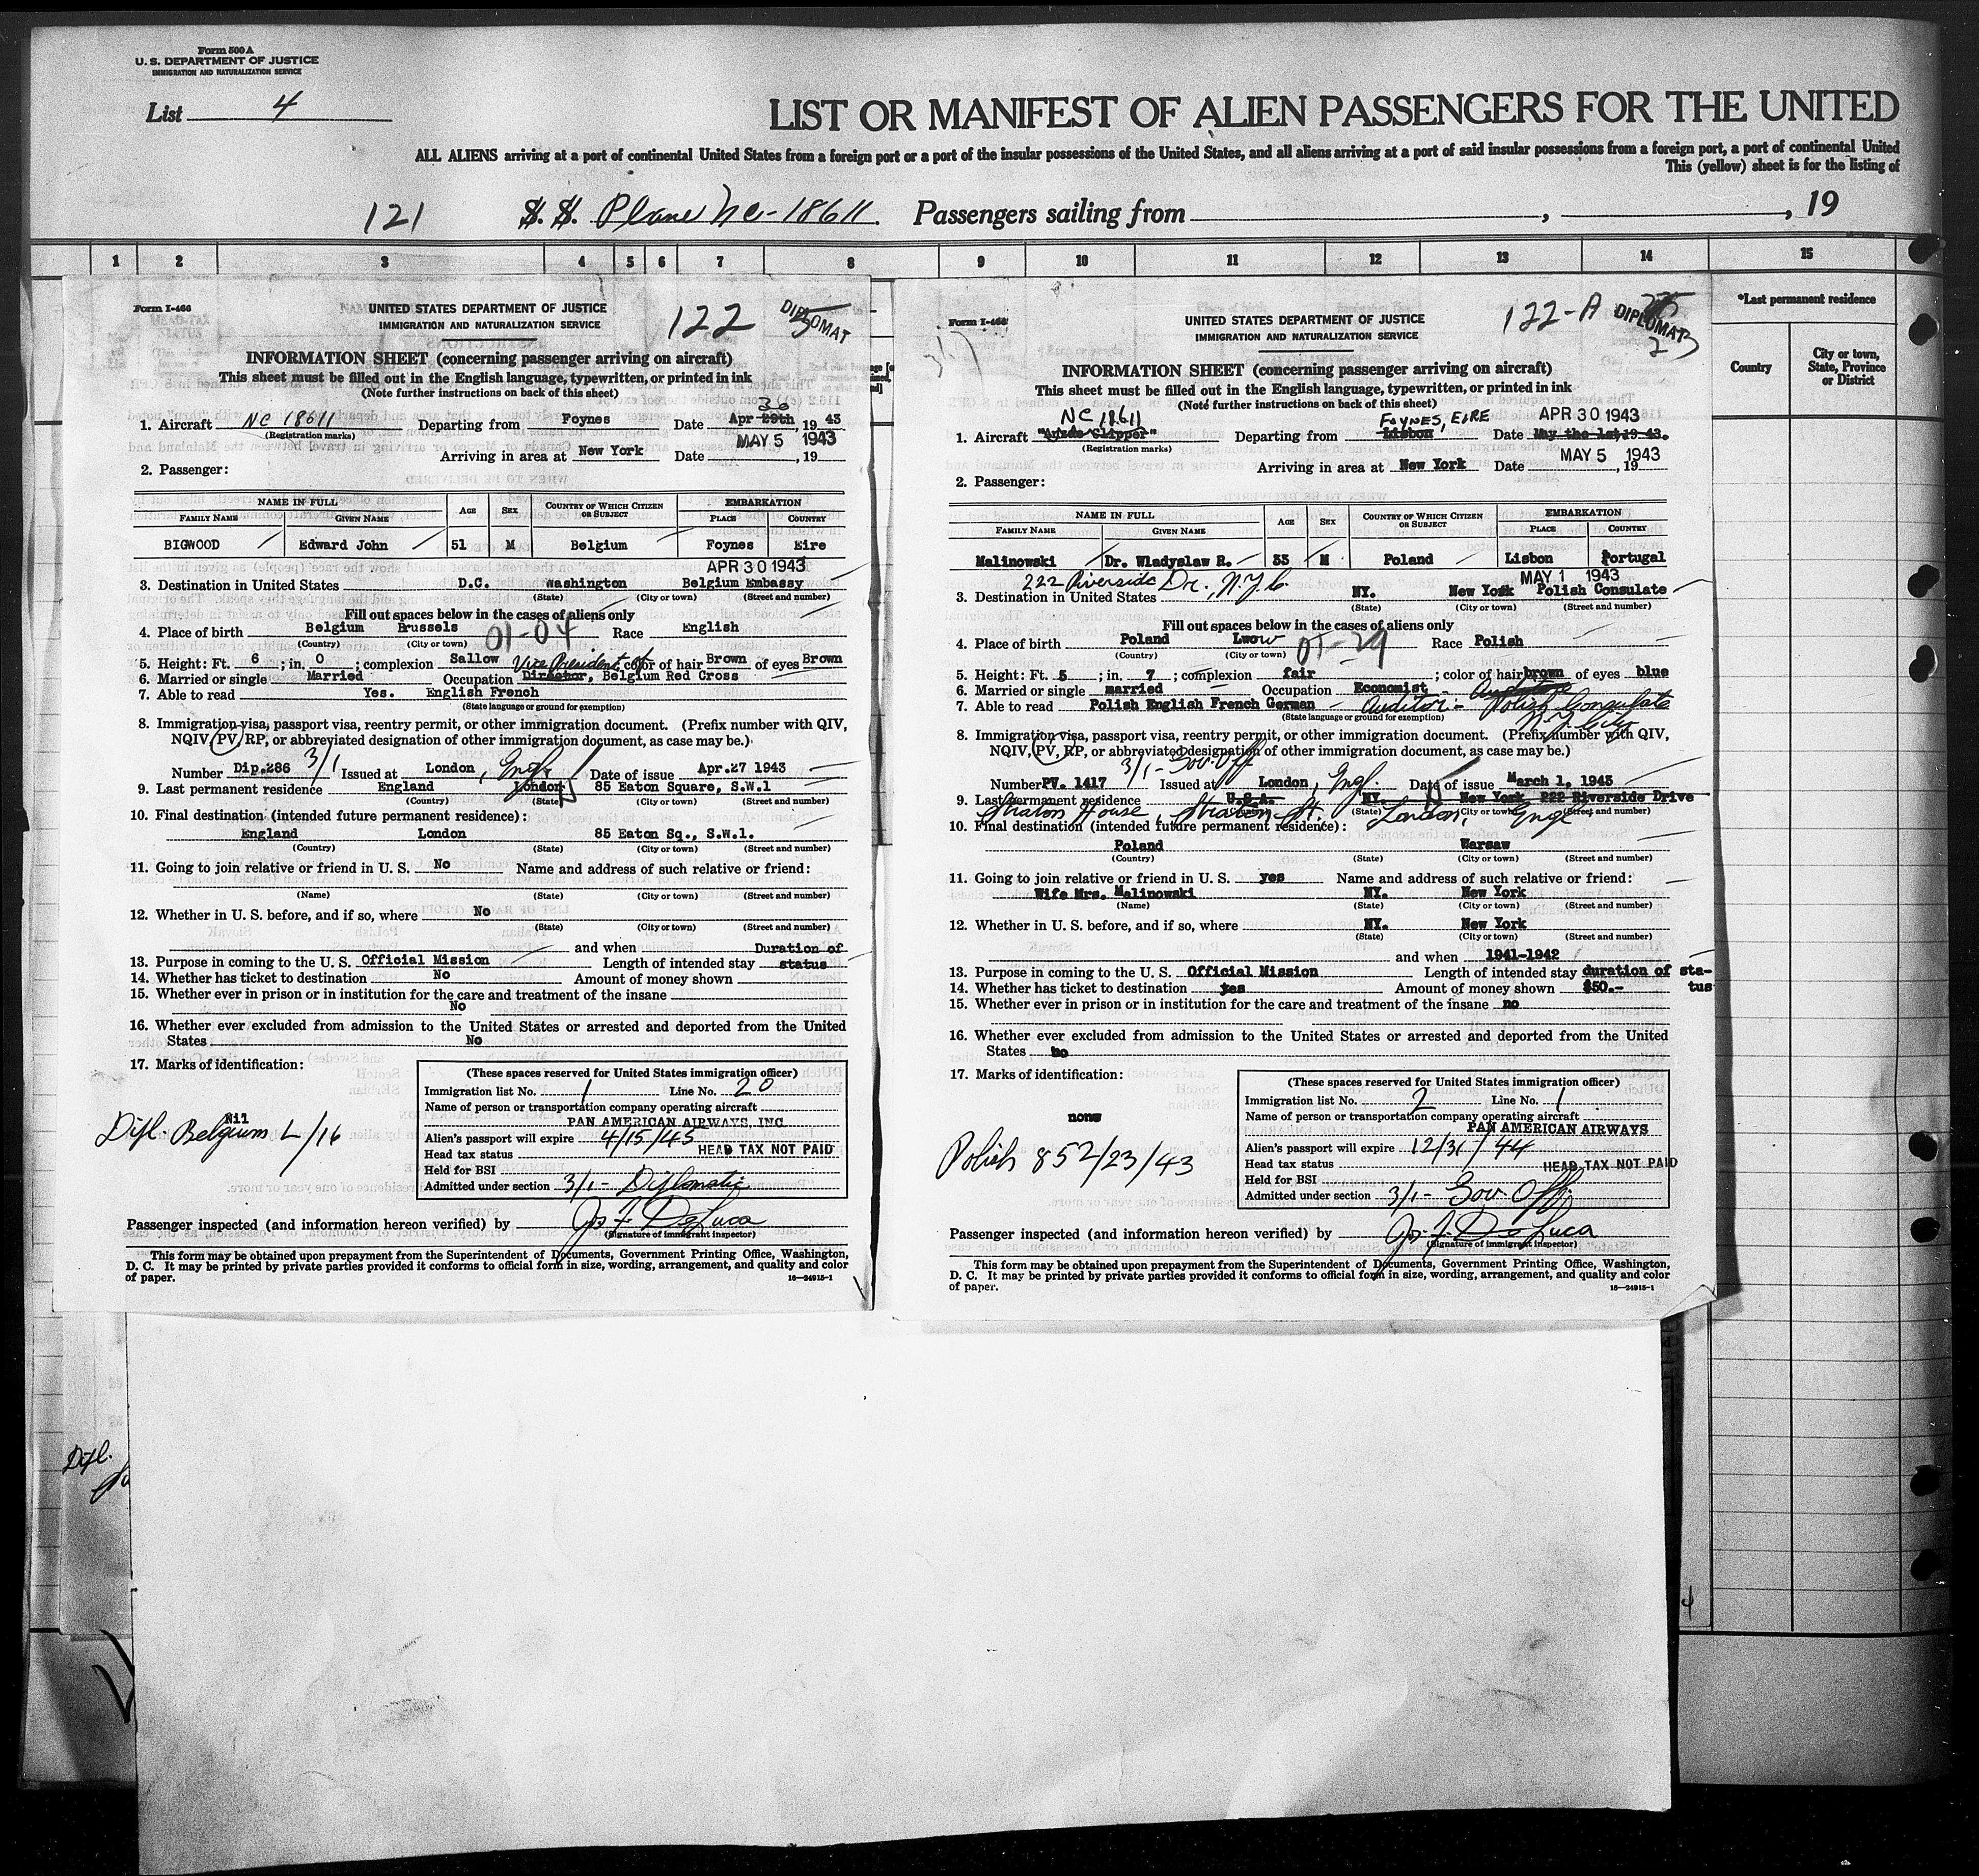 Form 500 A
U. S. DEPARTMENT OF JUSTICE
IMMIGRATION AND NATURALIZATION SERVICE
List 4
LIST OR MANIFEST OF ALIEN PASSENGERS FOR THE UNITED
ALL ALIENS arriving at a port of continental United States from a foreign port or a port of the insular possessions of the United States, and all aliens arriving at a port of said insular possessions from a foreign port, a port of continental United
This (yellow) sheet is for the listing of
121 S. S. Plane NC-18611 Passengers sailing from , , 19
1 2 3 4 5 6 7 8 9 10 11 12 13 14 15
*Last permanent residence
Country
City or town, State, Province or District
Form I-466
UNITED STATES DEPARTMENT OF JUSTICE
IMMIGRATION AND NATURALIZATION SERVICE
122
DIPLOMAT
INFORMATION SHEET (concerning passenger arriving on aircraft)
This sheet must be filled out in the English language, typewritten, or printed in ink
(Note further instructions on back of this sheet)
1. Aircraft NC 18611 Departing from Foynes Date Apr 29th 30, 19 43
(Registration marks)
Arriving in area at New York Date MAY 5 1943, 19
2. Passenger:
NAME IN FULL AGE SEX COUNTRY OF WHICH CITIZEN OR SUBJECT EMBARKATION
FAMILY NAME GIVEN NAME PLACE COUNTRY
BIGWOOD Edward John 51 M Belgium Foynes Eire
APR 30 1943
3. Destination in United States D.C. Washington Belgium Embassy
(State) (City or town) (Street and number)
Fill out spaces below in the cases of aliens only
4. Place of birth Belgium Brussels 01-04 Race English
(Country) (City or town)
5. Height: Ft. 6; in. 0; complexion Sallow; color of hair Brown of eyes Brown
Vice President of
6. Married or single Married Occupation Director, Belgium Red Cross
7. Able to read Yes. English French
(State language or ground for exemption)
8. Immigration visa, passport visa, reentry permit, or other immigration document. (Prefix number with QIV,
NQIV, PV, RP, or abbreviated designation of other immigration document, as case may be.)
Number Dip.286 3/1 Issued at London, Engl. Date of issue Apr.27 1943
9. Last permanent residence England London 85 Eaton Square, S.W.1
(Country) (State) (City or town) (Street and number)
10. Final destination (intended future permanent residence):
England London 85 Eaton Sq., S.W.1.
(Country) (State) (City or town) (Street and number)
11. Going to join relative or friend in U. S. No Name and address of such relative or friend:
(Name) (State) (City or town) (Street and number)
12. Whether in U. S. before, and if so, where No
(State) (City or town) (Street and number)
and when
13. Purpose in coming to the U. S. Official Mission Length of intended stay Duration of status
14. Whether has ticket to destination No Amount of money shown
15. Whether ever in prison or in institution for the care and treatment of the insane
No
16. Whether ever excluded from admission to the United States or arrested and deported from the United
States No
17. Marks of identification:
Nil
Dipl. Belgium L/16
(These spaces reserved for United States immigration officer)
Immigration list No. 1 Line No. 20
Name of person or transportation company operating aircraft
PAN AMERICAN AIRWAYS, INC.
Alien's passport will expire 4/15/45
Head tax status HEAD TAX NOT PAID
Held for BSI
Admitted under section 3/1 - Diplomatic
Passenger inspected (and information hereon verified) by Jos F. DeLuca
(Signature of immigrant inspector)
This form may be obtained upon prepayment from the Superintendent of Documents, Government Printing Office, Washington,
D. C. It may be printed by private parties provided it conforms to official form in size, wording, arrangement, and quality and color
of paper.
16—24915-1
Form I-466
UNITED STATES DEPARTMENT OF JUSTICE
IMMIGRATION AND NATURALIZATION SERVICE
122-A
DIPLOMAT
INFORMATION SHEET (concerning passenger arriving on aircraft)
This sheet must be filled out in the English language, typewritten, or printed in ink
(Note further instructions on back of this sheet)
NC 18611 FOYNES, EIRE APR 30 1943
1. Aircraft Clipper" Departing from Lisbon Date May the 1st, 19 43.
(Registration marks)
MAY 5 1943
Arriving in area at New York Date , 19
2. Passenger:
NAME IN FULL AGE SEX COUNTRY OF WHICH CITIZEN OR SUBJECT EMBARKATION
FAMILY NAME GIVEN NAME PLACE COUNTRY
Malinowski Dr. Wladyslaw R. 33 M Poland Lisbon Portugal
MAY 1 1943
222 Riverside Dr., N.Y.C.
3. Destination in United States NY. New York Polish Consulate
(State) (City or town) (Street and number)
Fill out spaces below in the cases of aliens only
4. Place of birth Poland Lwow 01-29 Race Polish
(Country) (City or town)
5. Height: Ft. 5; in. 7; complexion fair; color of hair brown of eyes blue
6. Married or single married Occupation Economist -
7. Able to read Polish English French German Auditor - Polish Consulate
(State language or ground for exemption)
N.Y. City
8. Immigration visa, passport visa, reentry permit, or other immigration document. (Prefix number with QIV,
NQIV, PV, RP, or abbreviated designation of other immigration document, as case may be.)
3/1 - Gov. Off.
Number PV. 1417 Issued at London, Engl. Date of issue March 1, 1943
9. Last permanent residence U.S.A. NY. New York 222 Riverside Drive
(State) (City or town) (Street and number)
Straton House, Straton St. London, Engl.
10. Final destination (intended future permanent residence):
Poland Warsaw
(Country) (State) (City or town) (Street and number)
11. Going to join relative or friend in U. S. yes Name and address of such relative or friend:
Wife Mrs. Malinowski NY. New York
(Name) (State) (City or town) (Street and number)
12. Whether in U. S. before, and if so, where NY. New York
(State) (City or town) (Street and number)
and when 1941-1942
13. Purpose in coming to the U. S. Official Mission Length of intended stay duration of sta-
tus
14. Whether has ticket to destination yes Amount of money shown $50.-
15. Whether ever in prison or in institution for the care and treatment of the insane no
16. Whether ever excluded from admission to the United States or arrested and deported from the United
States no
17. Marks of identification:
none
Polish 852/23/43
(These spaces reserved for United States immigration officer)
Immigration list No. 2 Line No. 1
Name of person or transportation company operating aircraft
PAN AMERICAN AIRWAYS
Alien's passport will expire 12/31/44
Head tax status HEAD TAX NOT PAID
Held for BSI
Admitted under section 3/1 - Gov Off.
Passenger inspected (and information hereon verified) by Jos. F. DeLuca
(Signature of immigrant inspector)
This form may be obtained upon prepayment from the Superintendent of Documents, Government Printing Office, Washington,
D. C. It may be printed by private parties provided it conforms to official form in size, wording, arrangement, and quality and color
of paper.
16—24915-1
Dipl.
4